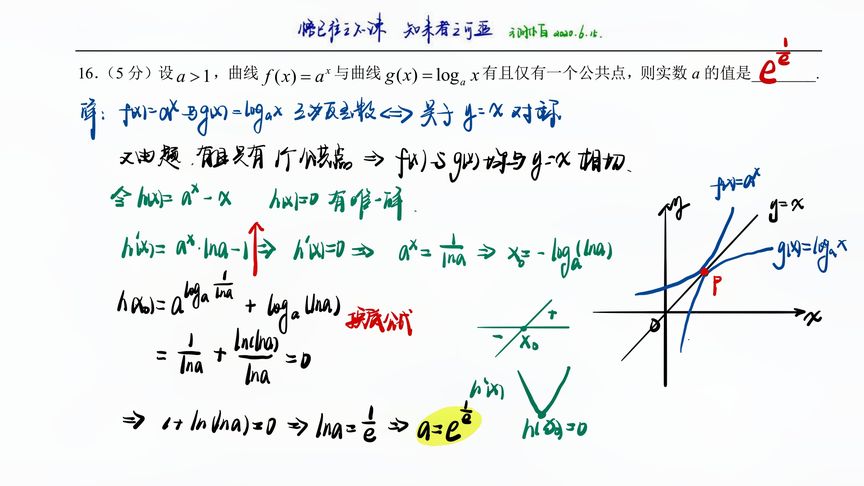 悟已往之不谏 知来者之可追 2020.6.15.
16.（5 分）设 a > 1，曲线 f(x) = aˣ 与曲线 g(x) = logₐ x 有且仅有一个公共点，则实数 a 的值是 e^{1/e}.
解：f(x)=aˣ与g(x)=logₐx 互为反函数 <=> 关于 y=x 对称
又由题，有且只有1个公共点 => f(x)与g(x)均与y=x相切.
令h(x)= aˣ - x h(x)=0 有唯一解.
h'(x)= aˣ·lna-1 => h'(x)=0 => aˣ= 1/lna => x₀= -logₐ(lna)
h(x₀)= a^{logₐ 1/lna} + logₐ(lna) 换底公式
= 1/lna + ln(lna)/lna =0
=> 1+ ln(lna)=0 => lna= 1/e => a=e^{1/e}
f(x)=aˣ
y
y=x
g(x)=logₐx
P
O
x
- x₀ +
h'(x)
h(x₀)=0